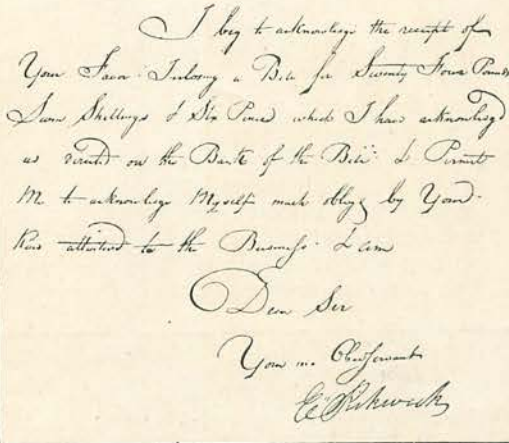 I beg to acknowledge the receipt of
Your Favor Inclosing a Bill for Seventy Four Pounds
Seven Shillings & Six Pence which I have acknowledg'd
as directed on the Back of the Bill & Permit
Me to acknowledge Myself much oblig'd by Your
attention to the Business I am
Dear Sir
Your Obed Servant